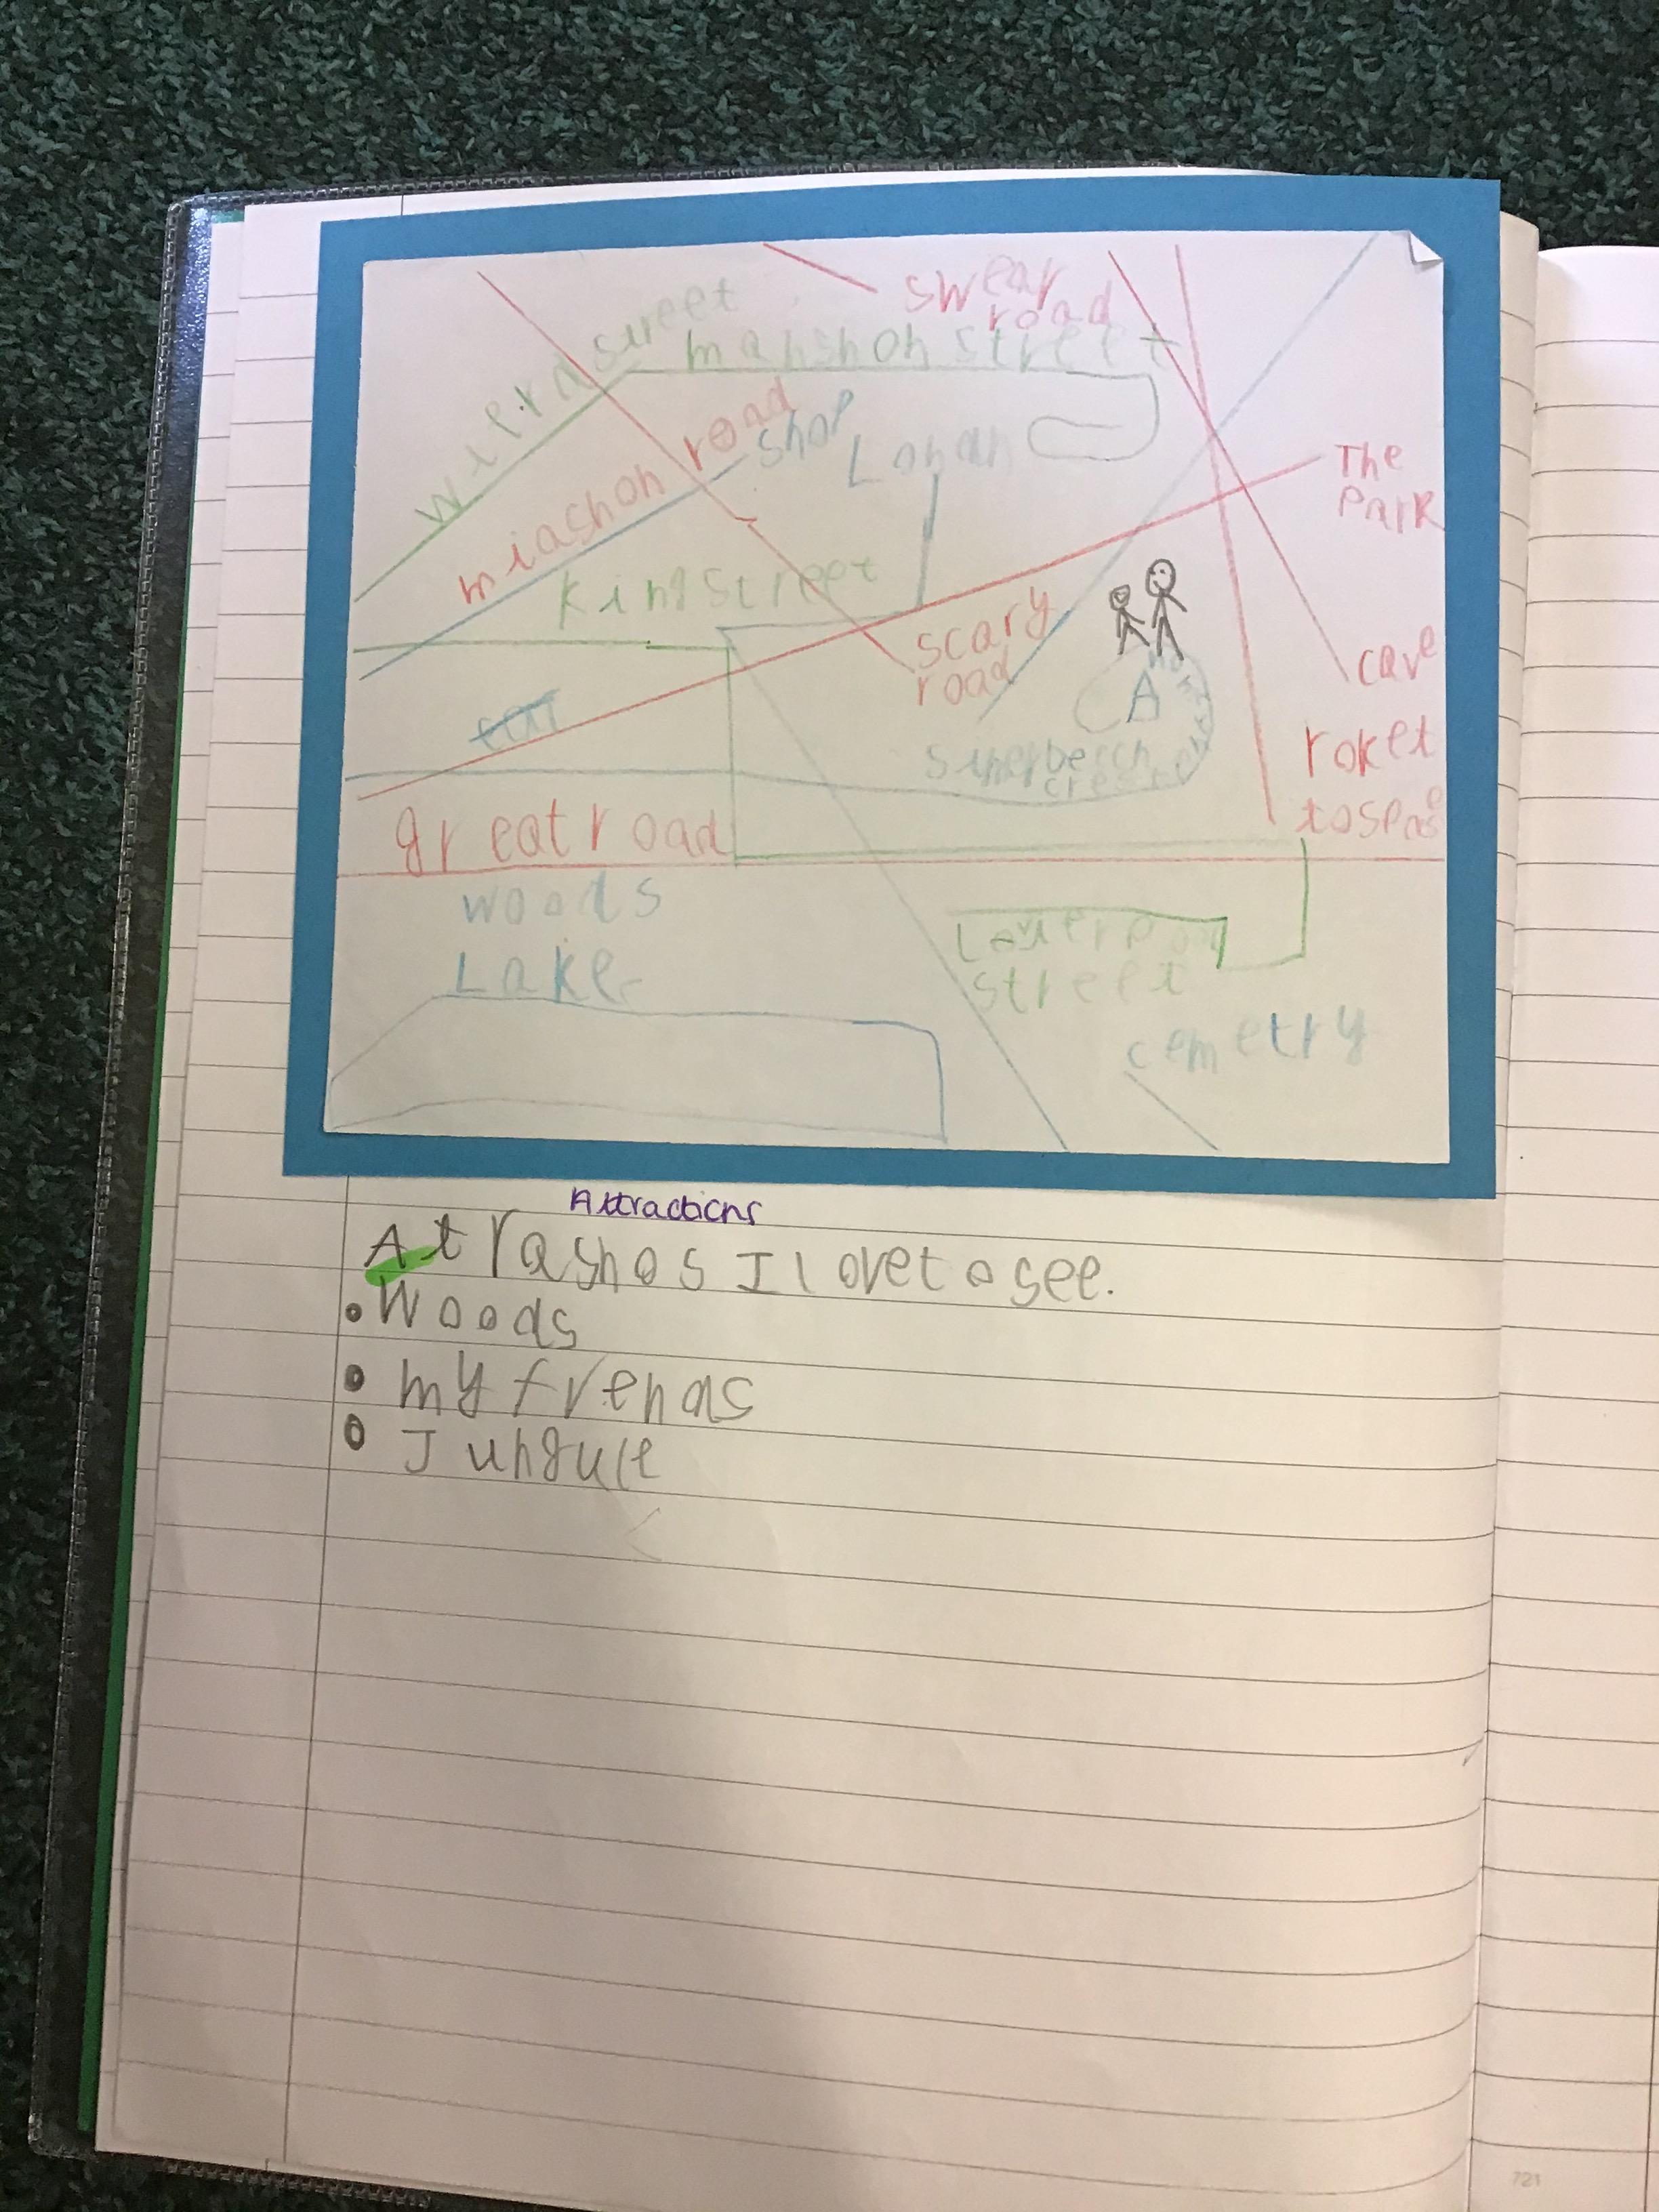 swear
road
weird street
manshon street
miashon road
shop
Lonan
The
Park
king street
scary
road
cave
A
roket
to spase
great road
woods
Lake
street
cemetry
Attractions
Atrashos I love to see.
• Woods
• my frends
• Jungule
721